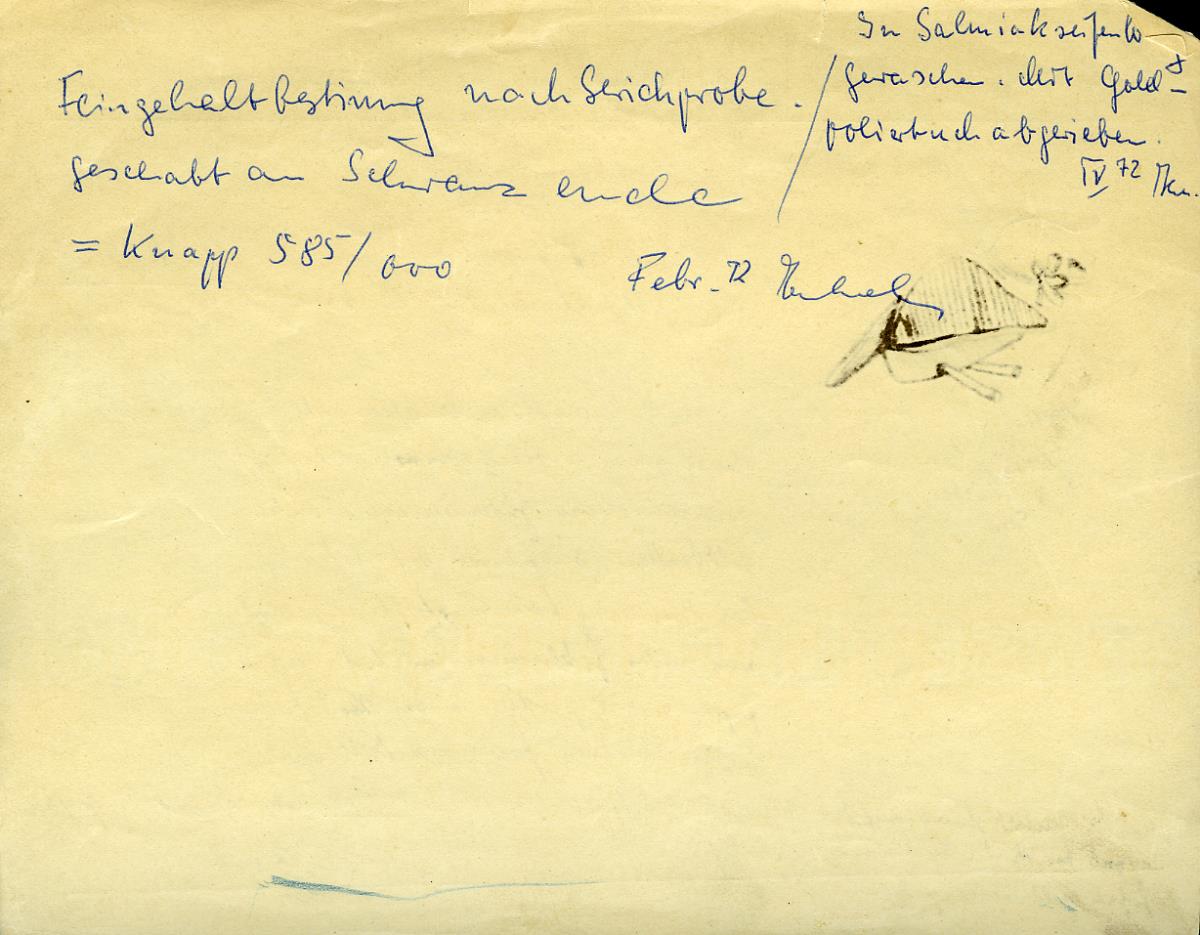 Feingehaltbestimung nach Strichprobe.
geschabt am Schwanzende
= Knapp 585/000
Febr. 72
In Salmiakseifenlö
gewaschen. Mit Gold-
poliertuch abgerieben.
IV 72 Ku.